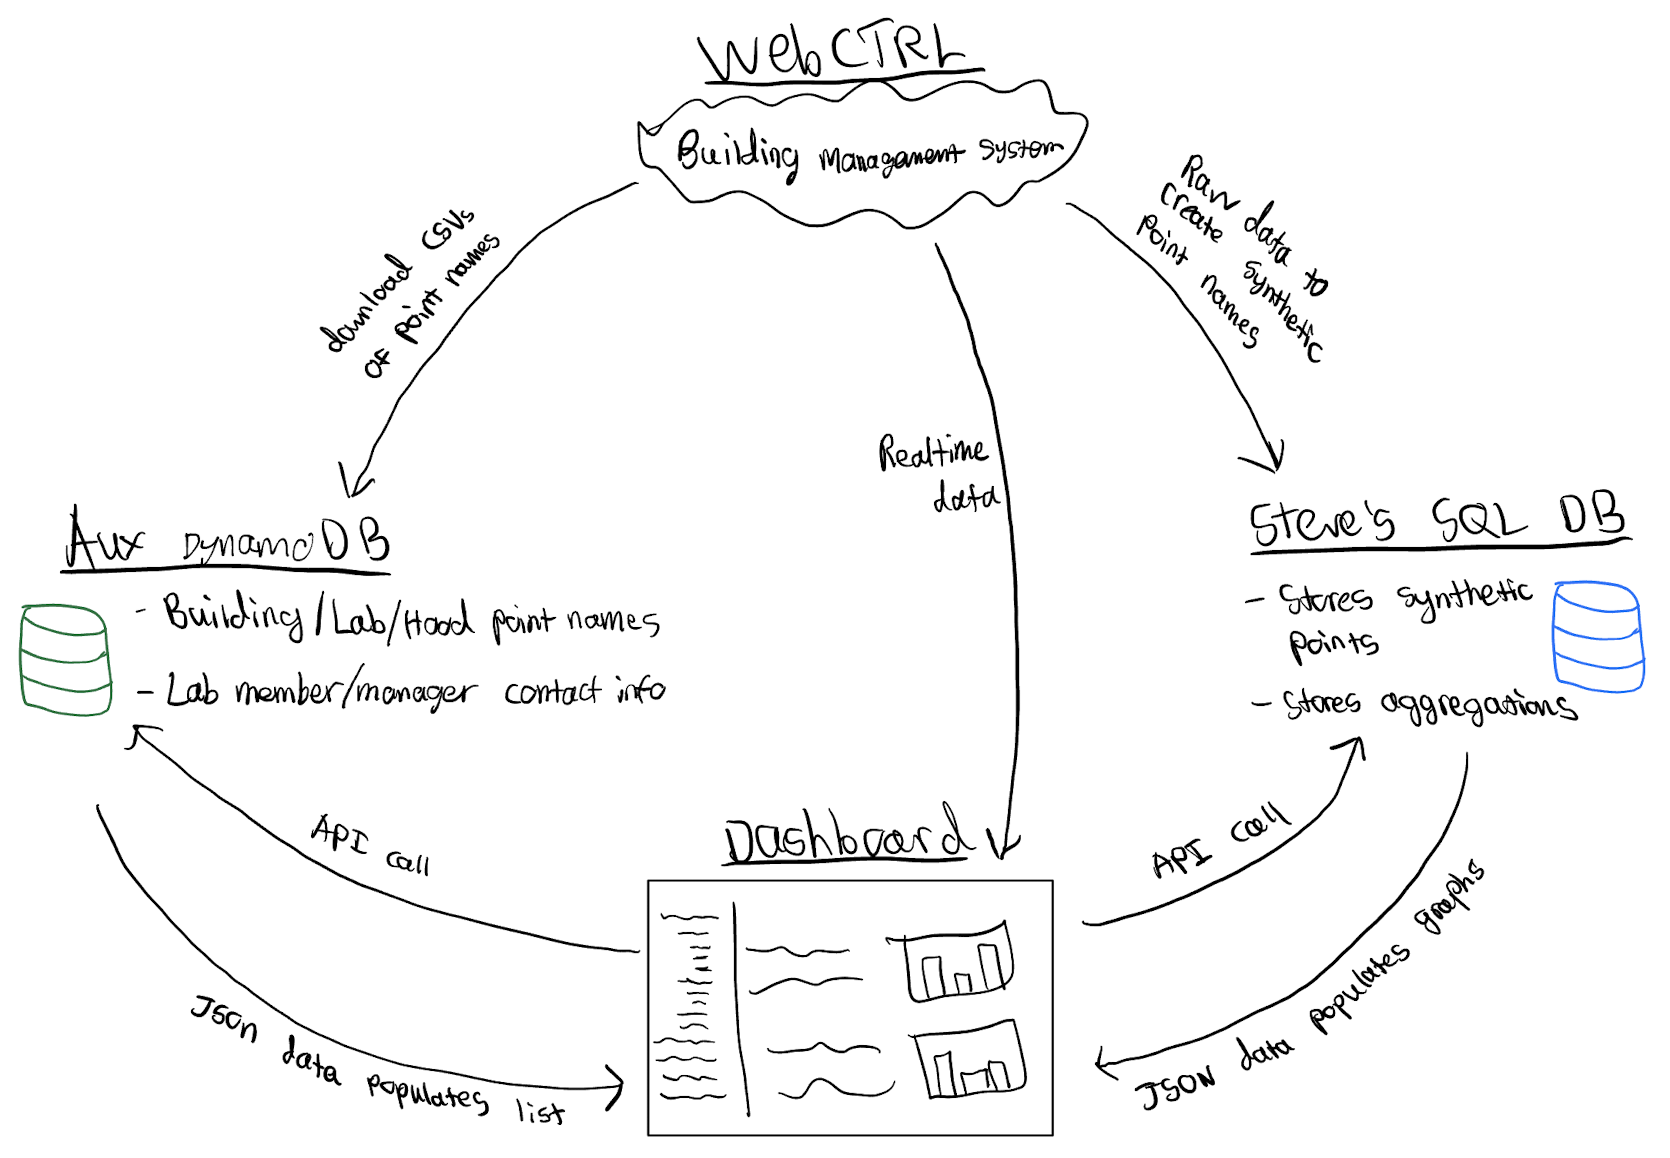 WebCTRL
Building Management System
download CSVs
of point names
Raw data to
create synthetic
point names
Realtime
data
Aux DynamoDB
- Building/Lab/Hood point names
- Lab member/manager contact info
Steve's SQL DB
- Stores synthetic
points
- Stores aggregations
API call
JSON data populates list
Dashboard
API call
JSON data populates graphs